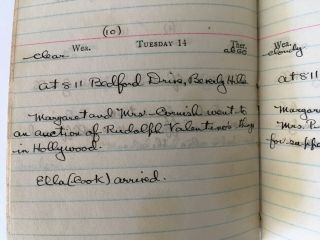 (10)
Wea. TUESDAY 14 Ther. Wea.
clear cloudy
at 811 Bedford Drive, Beverly Hills
at 811
Margaret and Mrs. Cornish went to
an auction of Rudolph Valentino's things
in Hollywood.
Margar
Mrs. P
for suppe
Ella (Cook) arrived.